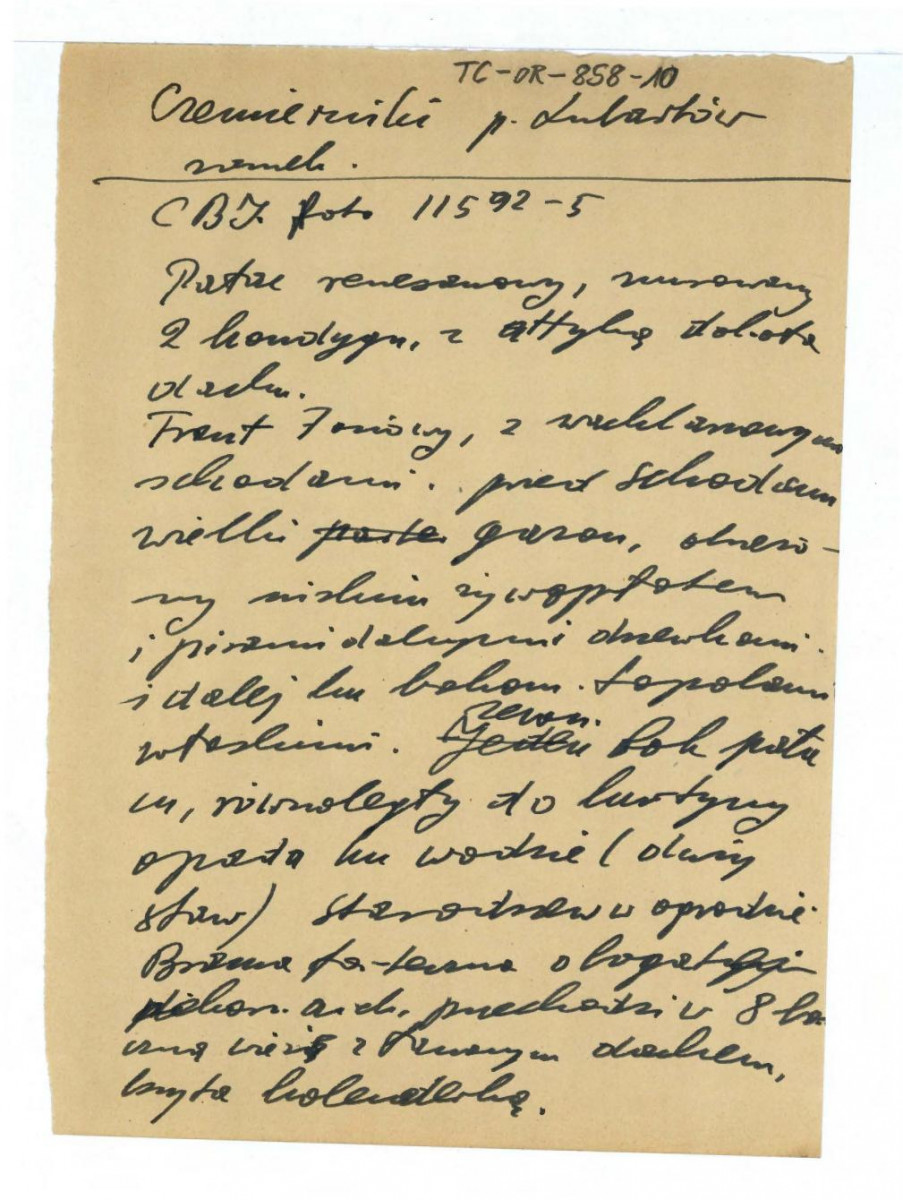 TC-OR-858-10
Czemierniki p. Lubartów
zamek.
CBI. foto 11592-5
Pałac renesansowy, murowany
2 kondygn. z attyką dokoła
dachu.
Front 7 osiowy, z wachlarzowym
schodami. przed schodami
wielki gazon, otoczo-
ny niskim żywopłotem
i piramidalnymi drzewkami.
i dalej ku bokom. topolami
włoskimi. Jeden bok pała
cu, równoległy do kurtyny
opada ku wodzie (duży
staw) starodrzew w ogrodzie.
Brama o bogatej
dekor. arch. przechodzi w 8 bo
czną wieżę z łamanym dachem,
kryta holenderką.